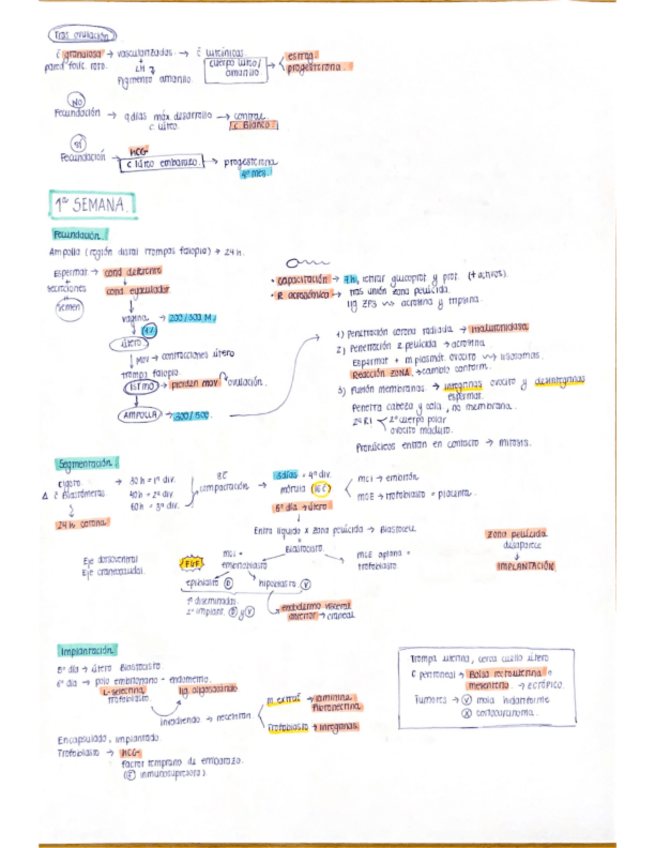 Tras ovulación
C granulosa → vascularizadas → C luteínicas.
pared folic. roto.
LH
Pigmento amarillo.
cuerpo lúteo/
amarillo
estróg.
progesterona.
NO
Fecundación → 9 días máx. desarrollo → contrae
c lúteo.
C Blanco
SÍ
Fecundación
HCG
c lúteo embarazo. → progesterona
4º mes.
1ª SEMANA.
Fecundación.
Ampolla (región distal trompas falopio) → 24 h.
Espermat. → cond deferente
+
secreciones
cond. eyaculador
semen
vagina → 200/300 M
útero
mov → contracciones útero
trompas falopio
ISTMO → pierden mov ovulación.
AMPOLLA → 300/500
• capacitación → 7h, retirar glucoprot y prot. (+ activos).
• R acrosómica → tras unión zona pelúcida.
lig ZP3 → acrosina y tripsina.
1) Penetración corona radiada → hialuronidasa
2) Penetración z pelúcida → acrosina
Espermat + m plasmát. ovocito → lisosomas.
Reacción ZONA → cambio conform.
3) Fusión membranas → integrinas ovocito y desintegrinas
espermat.
Penetra cabeza y cola, no membrana.
2º cuerpo polar
ovocito maduro.
Pronúcleos entran en contacto → mitosis.
Segmentación.
Cigoto → 30 h = 1ª div.
Δ C Blastómeras. 40 h = 2ª div
60 h = 3ª div.
24 h corona.
8C
compactación →
3 días = 4ª div.
mórula (16 C)
MCI → embrión
MCE → trofoblasto = placenta.
5º día → útero
Entra líquido x zona pelúcida → Blastocele
Blastocisto.
MCI =
embrioblasto
MCE aplana =
trofoblasto
zona pelúcida
desaparece
IMPLANTACIÓN
Eje dorsoventral
Eje craneocaudal.
FGF
epiblasto (D) hipoblasto (V)
1º diseminados
2º implant. (D) y (V)
endodermo visceral
anterior → craneal
Implantación.
5º día → útero Blastocisto.
6º día → polo embrionario - endometrio.
L-selectina
trofoblasto
lig. oligosacárido
invadiendo → receptores
m. extrac → laminina
fibronectina
Trofoblasto → integrinas
Encapsulado, implantado.
Trofoblasto → HCG
factor temprano de embarazo.
inmunosupresora).
Trompa uterina, cerca cuello útero
C peritoneal → Bolsa rectouterina o
mesenterio. → ectópico.
Tumores → (V) mola hidatiforme
coriocarcinoma.